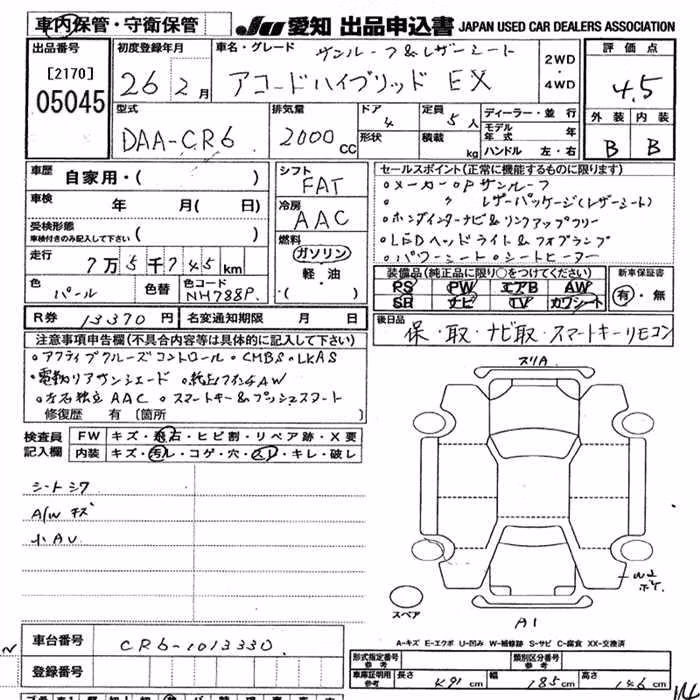 車内保管・守衛保管 JU 愛知 出品申込書 JAPAN USED CAR DEALERS ASSOCIATION
出品番号 初度登録年月 車名・グレード サンルーフ&レザーシート 2WD・4WD 評価点
[2170] 26年 2月 アコードハイブリッド EX 4.5
05045 型式 排気量 ドア 4 定員 5人 ディーラー・並行 外装 内装
DAA-CR6 2000cc 形状 積載 kg モデル年式 年 B B
ハンドル 左・右
車歴 自家用・( ) シフト FAT セールスポイント(正常に機能するものに限ります)
・メーカーOPサンルーフ
車検 年 月( 日) 冷房 AAC 〃 レザーパッケージ(レザーシート)
受検形態 車検付きのみ記入して下さい ( ) ・ホンダインターナビ&リンクアップフリー
燃料 ガソリン ・LEDヘッドライト&フォグランプ
走行 7万5千745km 軽・油 ・パワーシート・シートヒーター
色 パール 色替 色コード NH788P ・( ) 装備品(純正品に限り○をつけてください) 新車保証書
PS PW エアB AW 有・無
SR ナビ TV カワシート
R券 13370円 名変通知期限 月 日 後日品 保・取・ナビ取・スマートキーリモコン
注意事項申告欄(不具合内容等は具体的に記入して下さい)
・アクティブクルーズコントロール・CMBS・LKAS
・電動リアサンシェード ・純正17インチAW
・左右独立AAC ・スマートキー&プッシュスタート
修復歴 有 〔箇所
スリA
検査員記入欄 FW キズ・飛石・ヒビ割・リペア跡・X要
内装 キズ・汚レ・コゲ・穴・スレ・キレ・破レ
シートシワ
A/W キズ
小AU
スペア
A1
A-キズ E-エクボ U-凹み W-補修跡 S-サビ C-腐食 XX-交換済
車台番号 CR6-1013330
形式指定番号 参考 類別区分番号 参考
登録番号 車庫証明用 参考 長さ 491cm 幅 185cm 高さ 146cm